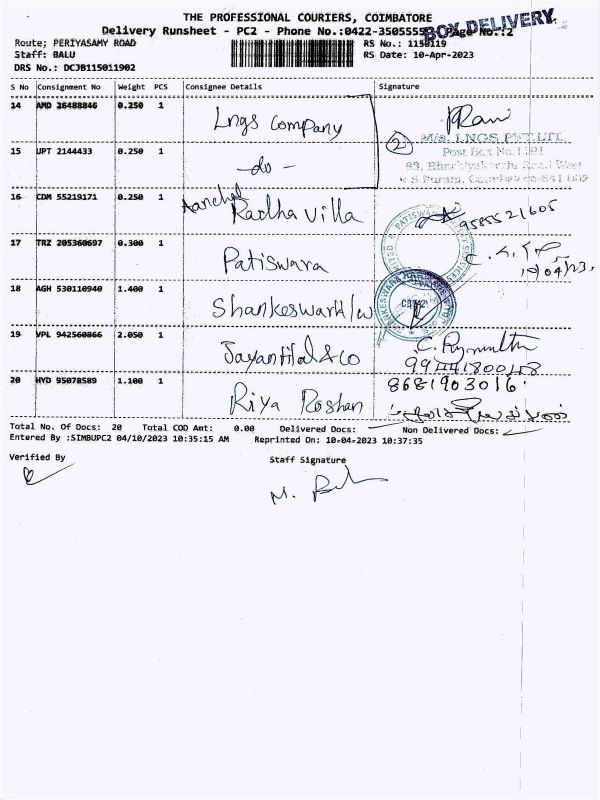 THE PROFESSIONAL COURIERS, COIMBATORE
Delivery Runsheet - PC2 - Phone No.:0422-3505555 Page No.:2
BOX DELIVERY
Route; PERIYASAMY ROAD RS No.: 1150119
Staff: BALU RS Date: 10-Apr-2023
DRS No.: DCJB115011902
S No Consignment No Weight PCS Consignee Details Signature
14 AMD 26488846 0.250 1 Lngs company
M/s. LNGS PVT.LTD.
Post Box No.1191
15 UPT 2144433 0.250 1 -do-
16 CDM 55219171 0.250 1 Aanchal Radha villa 9585521605
17 TRZ 205360697 0.300 1 Patiswara
18 AGH 530110940 1.400 1 Shankeswar H/w
19 VPL 942560866 2.050 1 Jayantilal & co
20 HYD 95078589 1.100 1 Riya Roshan 8681903016
Total No. Of Docs: 20 Total COD Amt: 0.00 Delivered Docs: Non Delivered Docs:
Entered By :SIMBUPC2 04/10/2023 10:35:15 AM Reprinted On: 10-04-2023 10:37:35
Verified By Staff Signature